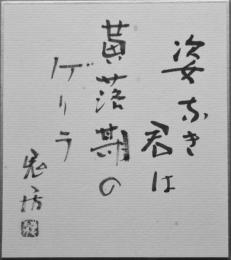 姿なき
君は
黄落期の
ゲリラ